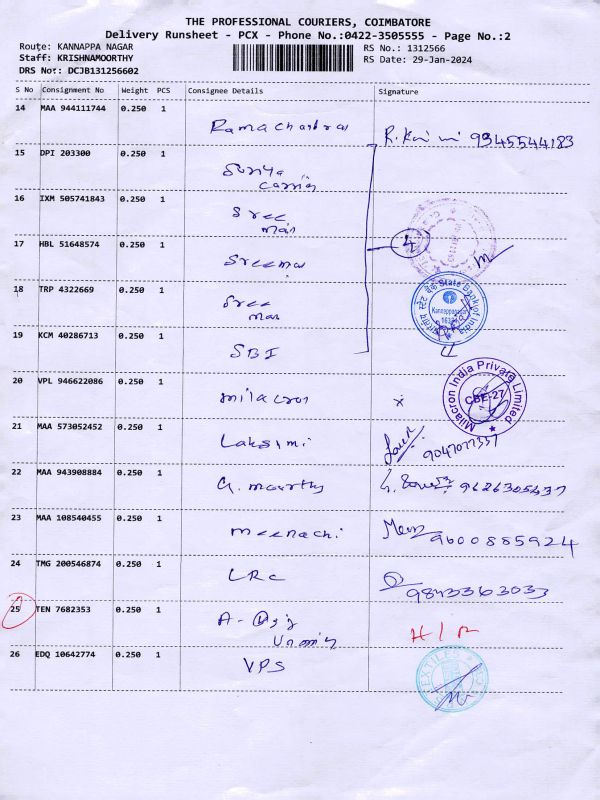 THE PROFESSIONAL COURIERS, COIMBATORE
Delivery Runsheet - PCX - Phone No.:0422-3505555 - Page No.:2
Route: KANNAPPA NAGAR
RS No.: 1312566
Staff: KRISHNAMOORTHY
RS Date: 29-Jan-2024
DRS No: DCJB131256602
S No Consignment No Weight PCS Consignee Details Signature
14 MAA 944111744 0.250 1 Ramachandra 9345544183
15 DPI 203300 0.250 1
16 IXM 505741843 0.250 1 Sree man
17 HBL 51648574 0.250 1
4
18 TRP 4322669 0.250 1 Sree man
State Bank of India
19 KCM 40286713 0.250 1 SBI
20 VPL 946622086 0.250 1 milacron x
Milacron India Private Limited
CBE-27
21 MAA 573052452 0.250 1 Laksimi
22 MAA 943908884 0.250 1 G. moorthy 9626305437
23 MAA 108540455 0.250 1 meenachi 9600885924
24 TMG 200546874 0.250 1 LRC 9843363033
25 TEN 7682353 0.250 1
26 EDQ 10642774 0.250 1 VPS